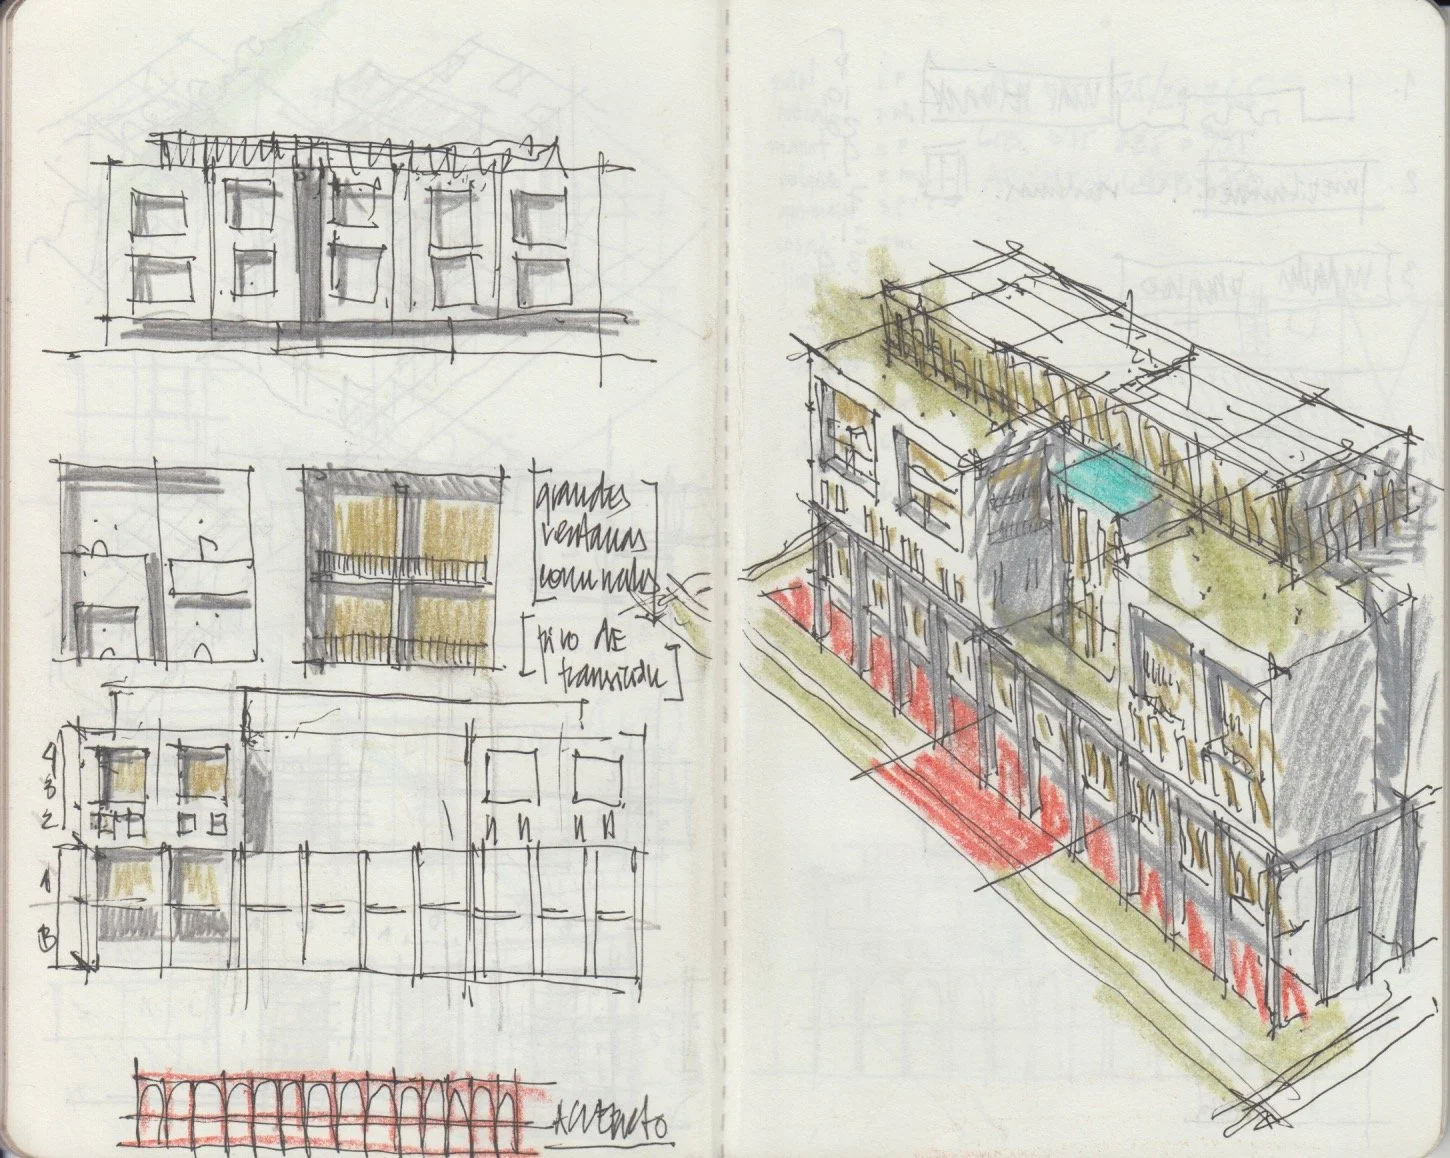 grandes
ventanas
comunales
piso DE
transición
4
3
2
1
B
ACUEDucto